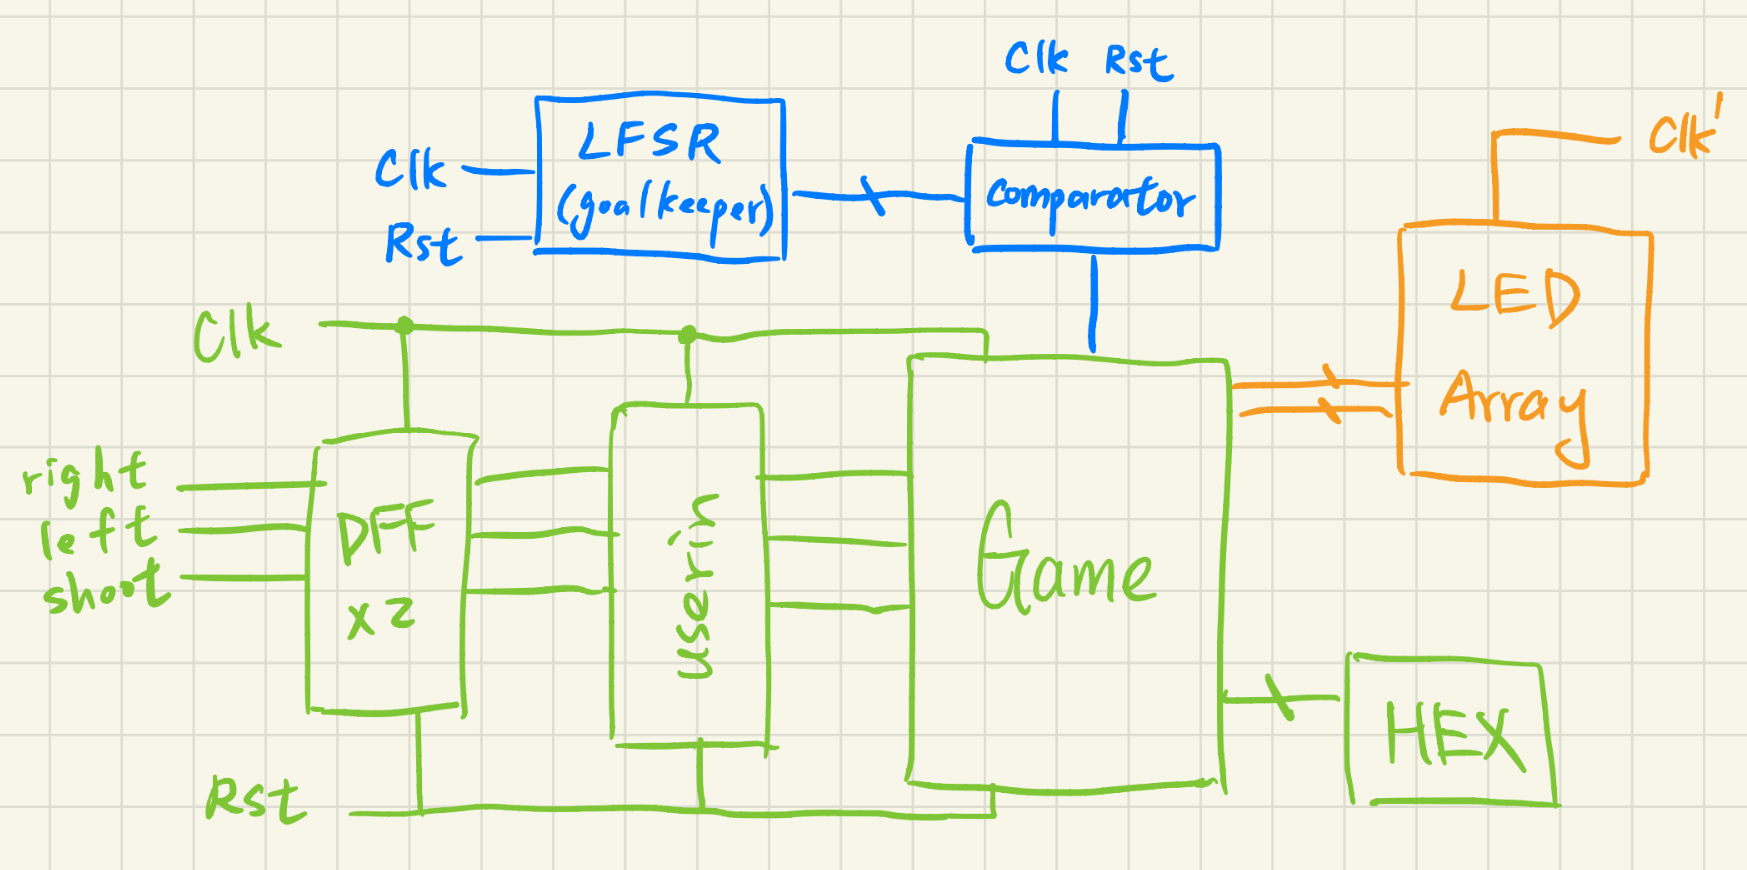 Clk Rst
LFSR
(goalkeeper)
Clk
Rst
Comparator
Clk'
LED
Array
Clk
right
left
shoot
DFF
x2
userin
Game
HEX
Rst